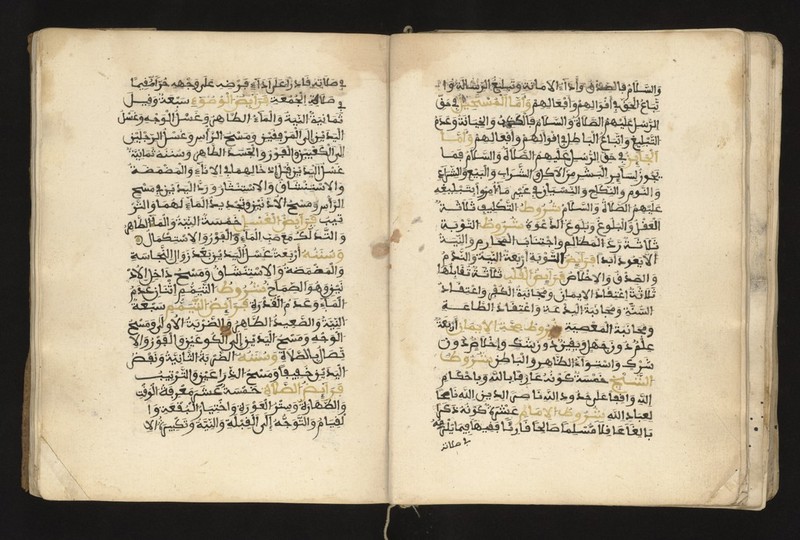 والسلام فالصدق وأداء الأمانة وتبليغ الرسالة وا
تباع الحق في أقوالهم وأفعالهم وأما المستحيل في حق
الرسل عليهم الصلاة والسلام فالكذب والخيانة وعدم
التبليغ واتباع الباطل في أقوالهم وأفعالهم وأما
الجائز في حق الرسل عليهم الصلاة والسلام فما
يجوز لسائر البشر من الأكل والشراب والبيع والشراء
والنوم والنكاح والنسيان في غير ما أمروا بتبليغه
عليهم الصلاة والسلام شروط التكليف ثلاثة
العقل والبلوغ وبلوغ الدعوة شروط التوبة
ثلاثة رد المظالم واجتناب المحارم والنية
ألا يعود أبدا فرائض التوبة أربعة النية والندم
والصدق والإخلاص فرائض القلب ثلاثة تقابلها
ثلاثة اعتقاد الإيمان ومجانبة الكفر واعتقاد
السنة ومجانبة البدعة واعتقاد الطاعة
ومجانبة المعصية شروط صحة الإيمان أربعة
علم دون جهل ويقين دون شك وإخلاص دون
شرك واستواء الظاهر والباطن شروط
الشيخ خمسة كونه عارفا بالله وبأحكام
الله واقفا على حدود الله ناصر الدين الله ناصحا
لعباد الله شروط الإمام عشرة كونه ذكرا
بالغا عاقلا مسلما صالحا قارئا فقيها فيما يلزمه
في صلاته
في صلاته قادرا على أداء فرضه على وجهه حرا فيما
في صلاة الجمعة فرائض الوضوء سبعة وقيل
ثمانية النية والماء الطاهر وغسل الوجه وغسل
اليدين إلى المرفقين ومسح الرأس وغسل الرجلين
إلى الكعبين والفور والجسد الطاهر وسننه ثمانية
غسل اليدين قبل إدخالهما في الإناء والمضمضة
والاستنشاق والاستنثار ورد اليدين في مسح
الرأس ومسح الأذنين وتجديد الماء لهما والتر
تيب فرائض الغسل خمسة النية والماء الطاهر
والتدلك مع صب الماء والفور والاستكمال
وسننه أربعة غسل اليدين بعد زوال النجاسة
والمضمضة والاستنشاق ومسح داخل الأذ
نين وهو الصماخ شروط التيمم اثنان عدم
الماء وعدم القدرة فرائض التيمم سبعة
النية والصعيد الطاهر والضربة الأولى ومسح
الوجه ومسح اليدين إلى الكوعين والفور والا
تصال بالصلاة وسننه الضربة الثانية ونفض
اليدين خفيفا ومسح الذراعين والترتيب
فرائض الصلاة خمسة عشر معرفة الوقت
والطهارة وستر العورة واختيار البقعة وا
لقيام والتوجه إلى القبلة والنية وتكبيرة الا